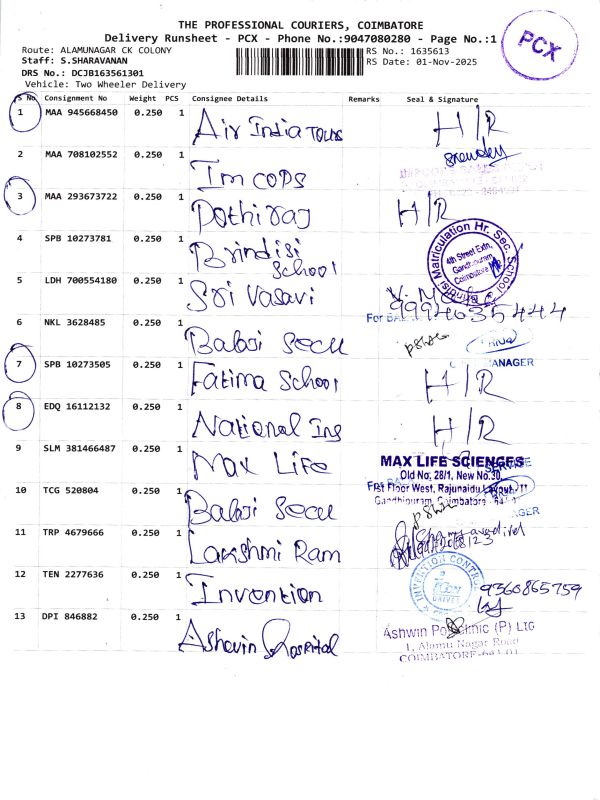 THE PROFESSIONAL COURIERS, COIMBATORE
Delivery Runsheet - PCX - Phone No.:9047080280 - Page No.:1
PCX
Route: ALAMUNAGAR CK COLONY
RS No.: 1635613
Staff: S.SHARAVANAN
RS Date: 01-Nov-2025
DRS No.: DCJB163561301
Vehicle: Two Wheeler Delivery
S No Consignment No Weight PCS Consignee Details Remarks Seal & Signature
1 MAA 945668450 0.250 1 Air India Tours H/R
2 MAA 708102552 0.250 1 Imcops
3 MAA 293673722 0.250 1 Pothiraj H/R
4 SPB 10273781 0.250 1 Brindisi School
Matriculation Hr. Sec. School
4th Street Extn,
Gandhipuram
Coimbatore
5 LDH 700554180 0.250 1 Sri Vasavi
9994035444
6 NKL 3628485 0.250 1 Balaji Secu
MANAGER
7 SPB 10273505 0.250 1 Fatima School H/R
8 EDQ 16112132 0.250 1 National Ins H/R
9 SLM 381466487 0.250 1 Max Life
MAX LIFE SCIENCES
Old No. 28/1, New No.30,
1st Floor West, Rajunaidu Layout
Gandhipuram, Coimbatore
10 TCG 520804 0.250 1 Balaji Secu
11 TRP 4679666 0.250 1 Lakshmi Ram
12 TEN 2277636 0.250 1 Invention
INVENTION
9360865759
13 DPI 846882 0.250 1 Ashwin Hospital
Ashwin Polyclinic (P) LTD
1, Alamu Nagar Road
COIMBATORE